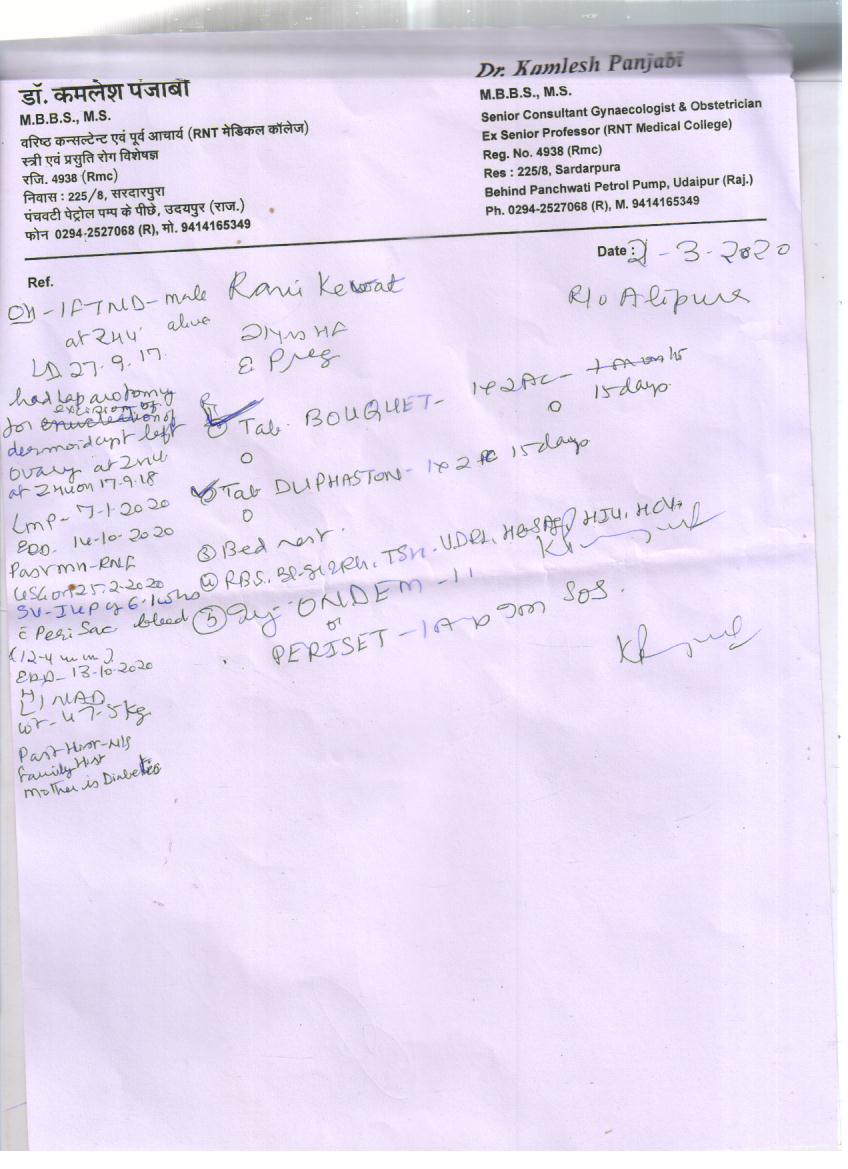 डॉ. कमलेश पंजाबी
M.B.B.S., M.S.
वरिष्ठ कन्सल्टेन्ट एवं पूर्व आचार्य (RNT मेडिकल कॉलेज)
स्त्री एवं प्रसुति रोग विशेषज्ञ
रजि. 4938 (Rmc)
निवास : 225/8, सरदारपुरा
पंचवटी पेट्रोल पम्प के पीछे, उदयपुर (राज.)
फोन 0294-2527068 (R), मो. 9414165349
Dr. Kamlesh Panjabi
M.B.B.S., M.S.
Senior Consultant Gynaecologist & Obstetrician
Ex Senior Professor (RNT Medical College)
Reg. No. 4938 (Rmc)
Res : 225/8, Sardarpura
Behind Panchwati Petrol Pump, Udaipur (Raj.)
Ph. 0294-2527068 (R), M. 9414165349
Date : 2-3-2020
Ref.
Rani Kewat
R/o Alipura
OH - 1FTND - male
at ZHU alive
LD 27.9.17
21yrs HF
c Preg
had laparotomy
for excision of
dermoid cyst left
ovary at ZHU on 17.9.18
LMP - 7-1-2020
EDD - 14-10-2020
Past MH - RNF
USG on 25.2.2020
SV - IUP of 6.1 wks
c Peri Sac bleed
(12-4 mm)
EDD - 13-10-2020
H
L) NAD
wt - 47.5 kg
Past Hist - NIS
Family Hist
Mother is Diabetic
① Tab BOUQUET - 1x2 AC - 15 days
② Tab DUPHASTON - 1x2 PC 15 days
③ Bed rest.
④ RBS, Bl-gr & Rh, TSH, VDRL, HBSAg, HIV, HCV
⑤ Inj - ONDEM - 11
or
PERISET - 1 SOS.